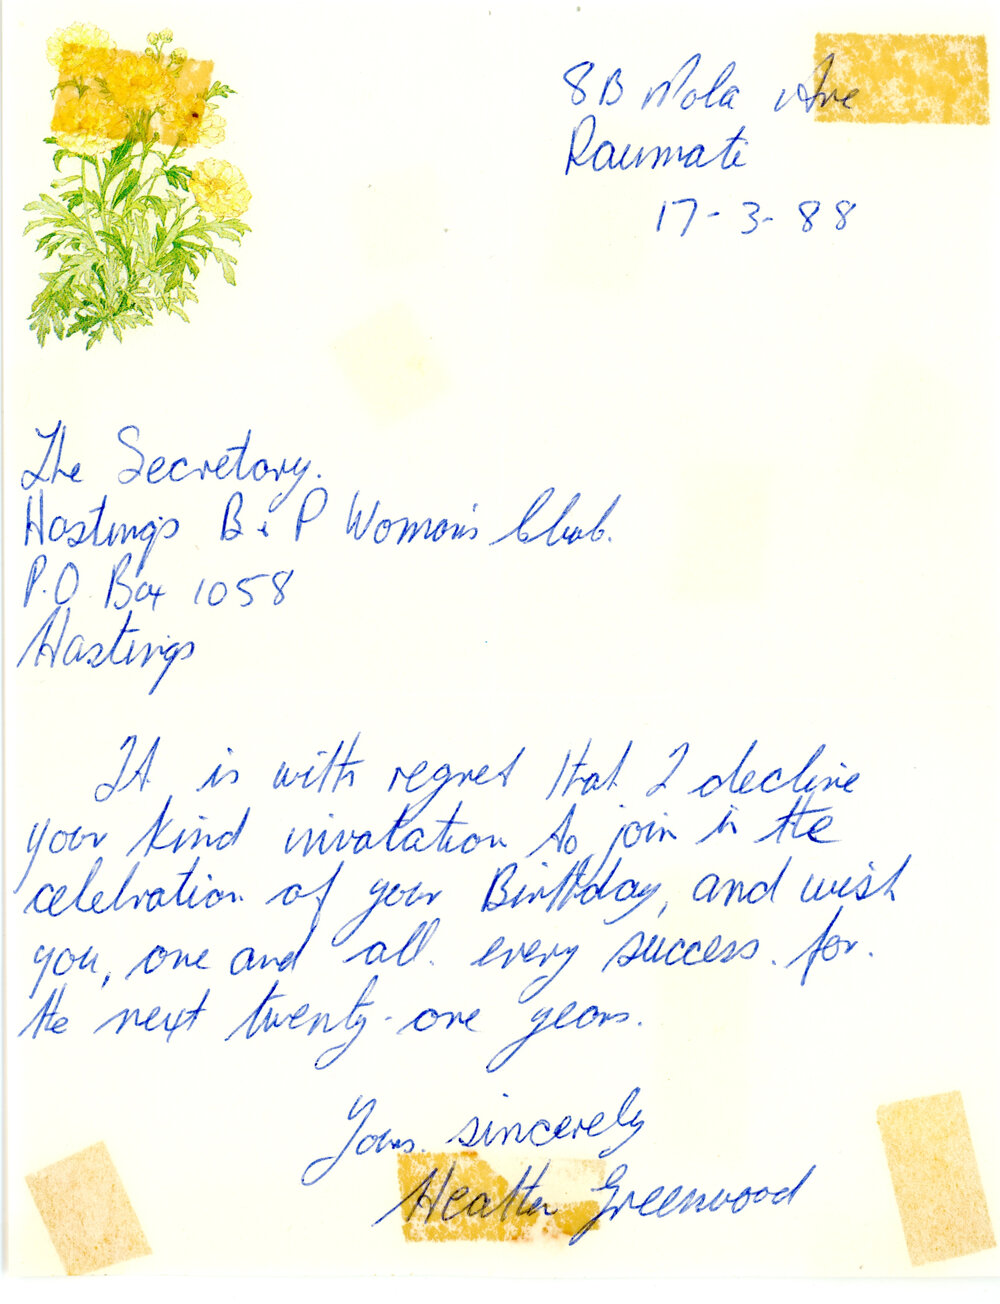 8B Mola Ave
Raumati
17-3-88
The Secretary.
Hastings B & P Woman's Club.
P.O Box 1058
Hastings
It is with regret that I decline
your kind invatation to join in the
celebration of your Birthday, and wish
you, one and all. every success. for.
the next twenty-one years.
Yours. sincerely
Heather Greenwood